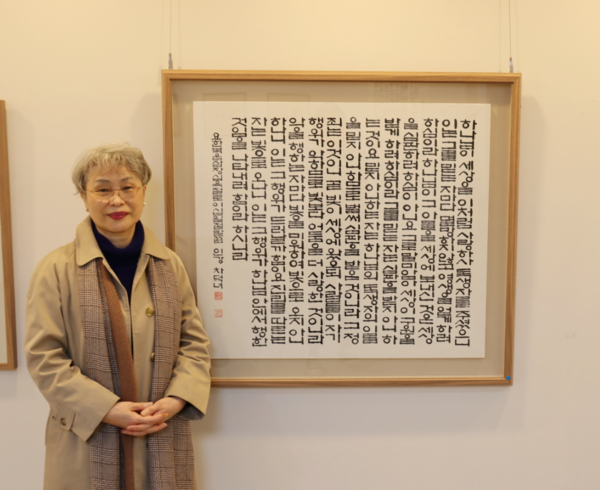 하나님이 세상을 이처럼 사랑하사 독생자를 주셨으니
이는 그를 믿는 자마다 멸망하지 않고 영생을 얻게 하려
하심이라 하나님이 그 아들을 세상에 보내신 것은 세상
을 심판하려 하심이 아니요 그로 말미암아 세상이 구원을
받게 하려 하심이라 그를 믿는 자는 심판을 받지 아니하
는 것이요 믿지 아니하는 자는 하나님의 독생자의 이름
을 믿지 아니하므로 벌써 심판을 받은 것이니라 그 정
죄는 이것이니 곧 빛이 세상에 왔으되 사람들이 자기
행위가 악하므로 빛보다 어둠을 더 사랑한 것이니라
악을 행하는 자마다 빛을 미워하여 빛으로 오지 아니
하나니 이는 그 행위가 드러날까 함이요 진리를 따르는
자는 빛으로 오나니 이는 그 행위가 하나님 안에서 행한
것임을 나타내려 함이라 하시니라